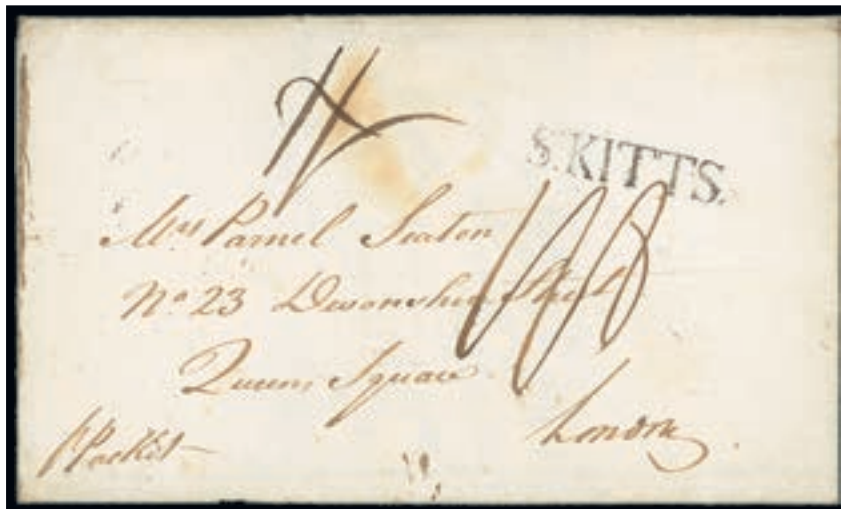 S.KITTS.
Mrs Parnel Seaton
No 23 Devonshire Street
Queens Square
London
pr Packet